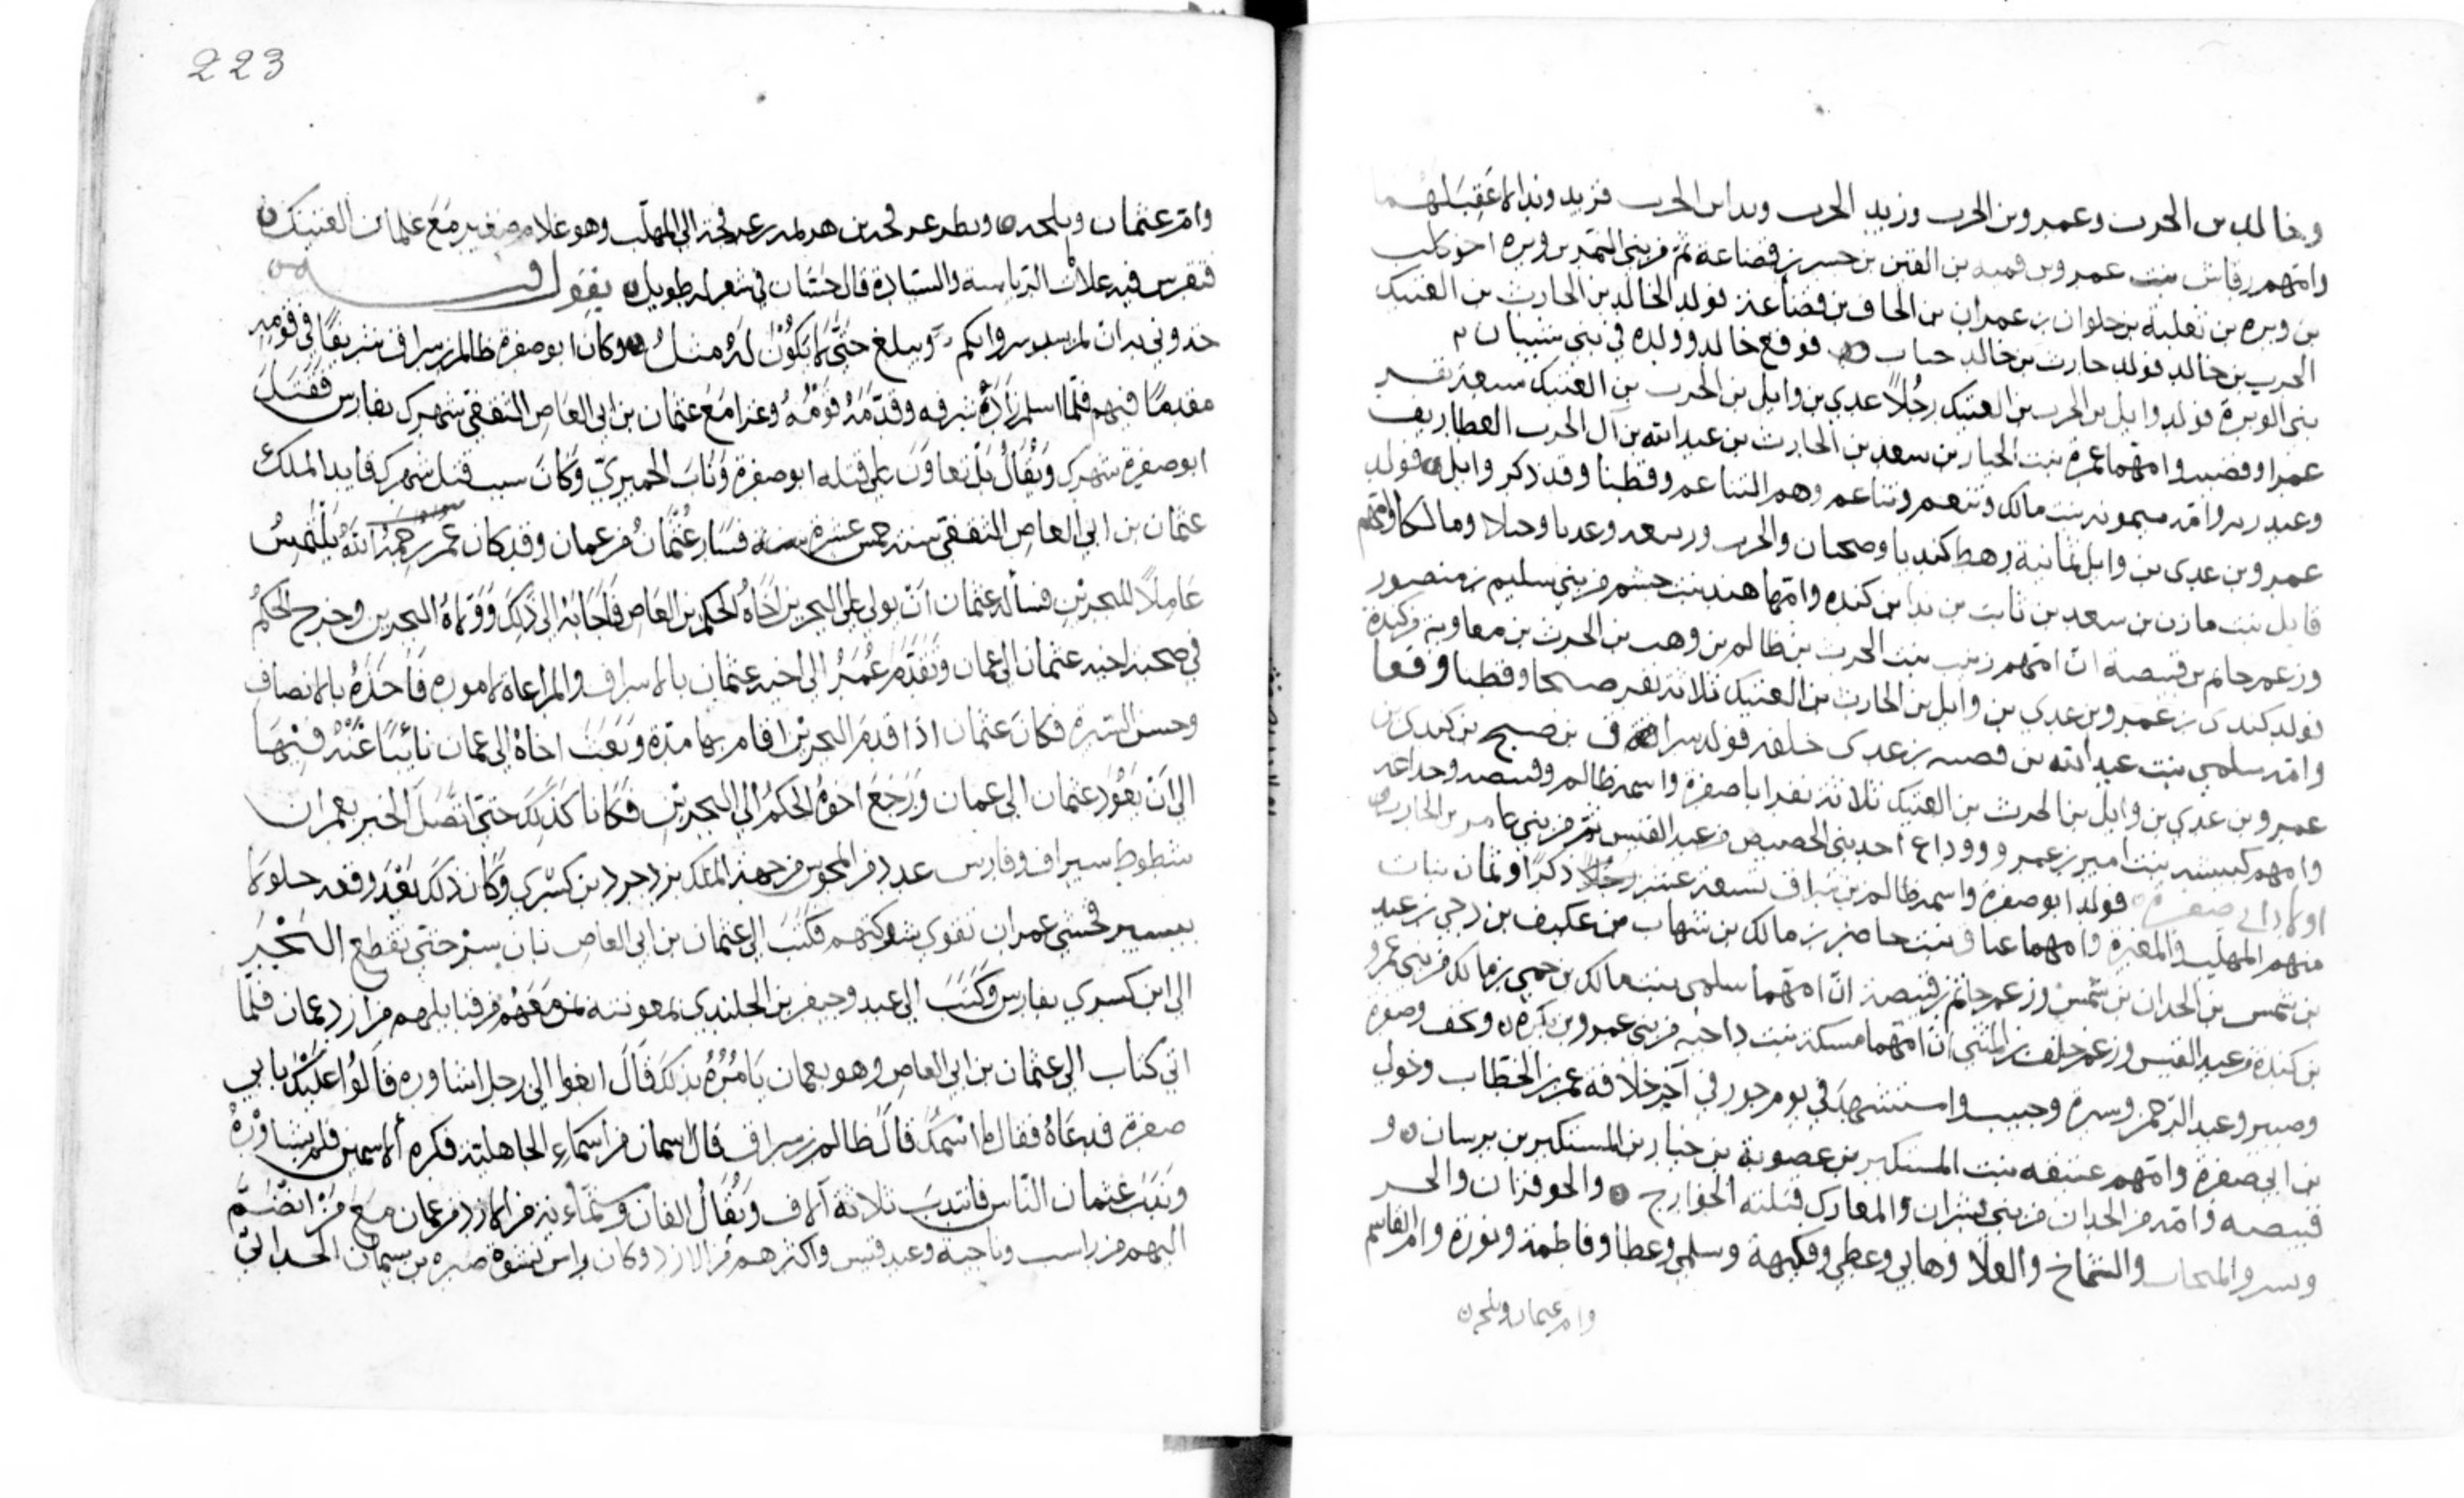 وخالد بن الحرث وعمرو بن الحرث وزيد الحرث وندا بن الحرث فزيد وندا لا عقب لهما
وامهم رقاش بنت عمرو بن قميه بن القين بن جسر بن قضاعة ثم من بني النمر بن وبرة اخو كلب
بن وبرة بن ثعلبة بن حلوان بن عمران بن الحاف بن قضاعة فولد الخالد بن الحارث بن العتيك
الحرب بن خالد فولد حارث بن خالد حباب فوقع خالد وولده في بني شيبان
بني الوبرة فولد وايل بن الحرث بن العتيك رجلاً عدي بن وايل بن الحرث بن العتيك سبعة نفر
عمرا وقضيبا وامهما عمرة بنت الجبار بن سعد بن الحارث بن عبد الله بن آل الحرث الغطاريف
وعبد ربه وامه ميمونه بنت مالك وتنعم وتناعم وهم التناعم وقطنا وقد ذكر وايل فولد
عمرو بن عدي بن وايل ثمانية رهط كنديا وصحبان والحرب وربيعه وعديا وجبلا ومالكا وامهم
قابل بنت مازن بن سعد بن ثابت بن ندا بن كنده وامها هند بنت جشم من بني سليم بن منصور
وزعم حاتم بن قبيصة انّ امهم زينب بنت الحرث بن ظالم بن وهب بن الحرث بن معاوية من كندة
فولد كندي بن عمرو بن عدي بن وايل بن الحارث بن العتيك ثلاثة نفر صبحا وقطنا
وامه سلمي بنت عبد الله بن قصيه بن عدي خلفه فولد سراف بن صبح بن كندي بن
عمرو بن عدي بن وايل بن الحرث بن العتيك ثلاثة نفر ابا صفرة واسمه ظالم وقبيصه وجداعه
وامهم كبيشه بنت امير بن عمرو ووداع احد بني الحصيص من عبد القيس ثم من بني عامر بن الحارث
اولاد ابي صفرة فولد ابو صفرة واسمه ظالم بن سراف تسعة عشر رجلاً ذكرا وثمان بنات
منهم المهلب والمغيرة وامهما عناق بنت حاضر بن مالك بن شهاب من عكيف بن دحي بن عبد
بن شمس بن الحدان بن شمس وزعم حاتم بن قبيصة انّ امهما سلمى بنت مالك بن حمي بن مالك من بني عمرو
بن كندة من عبد القيس وزعم خلف بن المثنى انّ امهما مسكة بنت داحيه من بني عمرو بن بكرة ونخف وصورة
وصبر وعبد الرحمن وسبرة وحبيب واستشهد في يوم جور في آخر خلافة عمر بن الخطاب وخولي
بن ابي صفرة وامهم عتيقه بنت المستكبر بن عصوبة بن حيار بن المستكبر بن برسان و
قبيصه وامه من الحدان من بني بشران والمعارك قتلته الخوارج والحوفزان والحر
وبسر والمنجاب والشماخ والعلا وهاني وعطي وفكيهة وسلمى وعطا وفاطمة ونوزة وام القاسم
وام عثمان وبلحه
223
وام عثمان وبلجه ونظر عمر بن هرمه الى المهلب وهو غلام صغير مع غلمان العتيك
فتفرس فيه علامات الرياسة والسيادة فقال حسّان في شعر له طويل يقول فيه
خذوني به ان لم يسد سرواتكم ويبلغ حتّى لا يكون له مثل وكان ابو صفرة ظالم بن سراف شريفًا في قومه
مقدمًا فيهم فلمّا اسلم زادَهُ شرفه وقدّمه قومُهُ وغزا مع عثمان بن ابي العاص الثقفي شهرك بفارس فقتلَ
ابو صفرة شهرك ويُقال بل تعاون على قتله ابو صفرة وناب الحميريّ وكان سبب قتل شهرك قايد الملك
عثمان بن ابي العاص الثقفي سنة خمس عشرة سنة فسار عثمانُ من عمان وقد كان عمر رحمهُ اللهُ يلتمسُ
عاملاً للبحرين فسأله عثمان انّ يولي على البحرين اخاهُ الحكم بن العاص فاجابه الى ذلك وولاهُ البحرين وخرج الحكمُ
في صحبة اخيه عثمان الى عمان وتقدّم عُمرُ الى اخيه عثمان بالاشراف والمراعاة لاموره فاخذهُ بالانصاف
وحسن السيرة فكان عثمان اذا قدم البحرين اقام بها مدّة وبعث اخاهُ الى عمان نائبًا عنهُ فيها
الى ان يعُود عثمان الى عمان ورجعَ اخوهُ الحكمُ الى البحرين فكانا كذلك حتى اتصل الخبر بعمر ان
شطوط سيراف وفارس عدد من المجوس من جهة الملك يزدجرد بن كسرى وكان ذلك بعد وقعه جلولا
بيسير فخشي عمر ان تقوى شوكتهم فكتب الى عثمان بن ابي العاص بان سر حتى تقطع البحر
الى ابن كسري بفارس وكتب الى عبد وجيفر بن الجلندي بمعونته بمن معهم من قبايلهم من ازد عمان فلمّا
اتى كتاب الى عثمان بن ابي العاص وهو بعمان يامُرُهُ بذلك قال ابغوا الى رجل اشاوره قالوا عليك بابي
صفرة فدعاهُ فقال ما اسمك قال ظالم بن سراف قال اسمان من اسماءِ الجاهلية فكره الاسمين فلم يشاورهُ
وندب عثمان النّاس فانتدب ثلاثة آلاف ويُقالُ الفان وستمّائة من الازد من عمان مع من انضمّ
اليهم من راسب وناجية وعبد قيس واكثرهم من الازد وكان راس شنوة صبره بن سيمان الحدانيّ